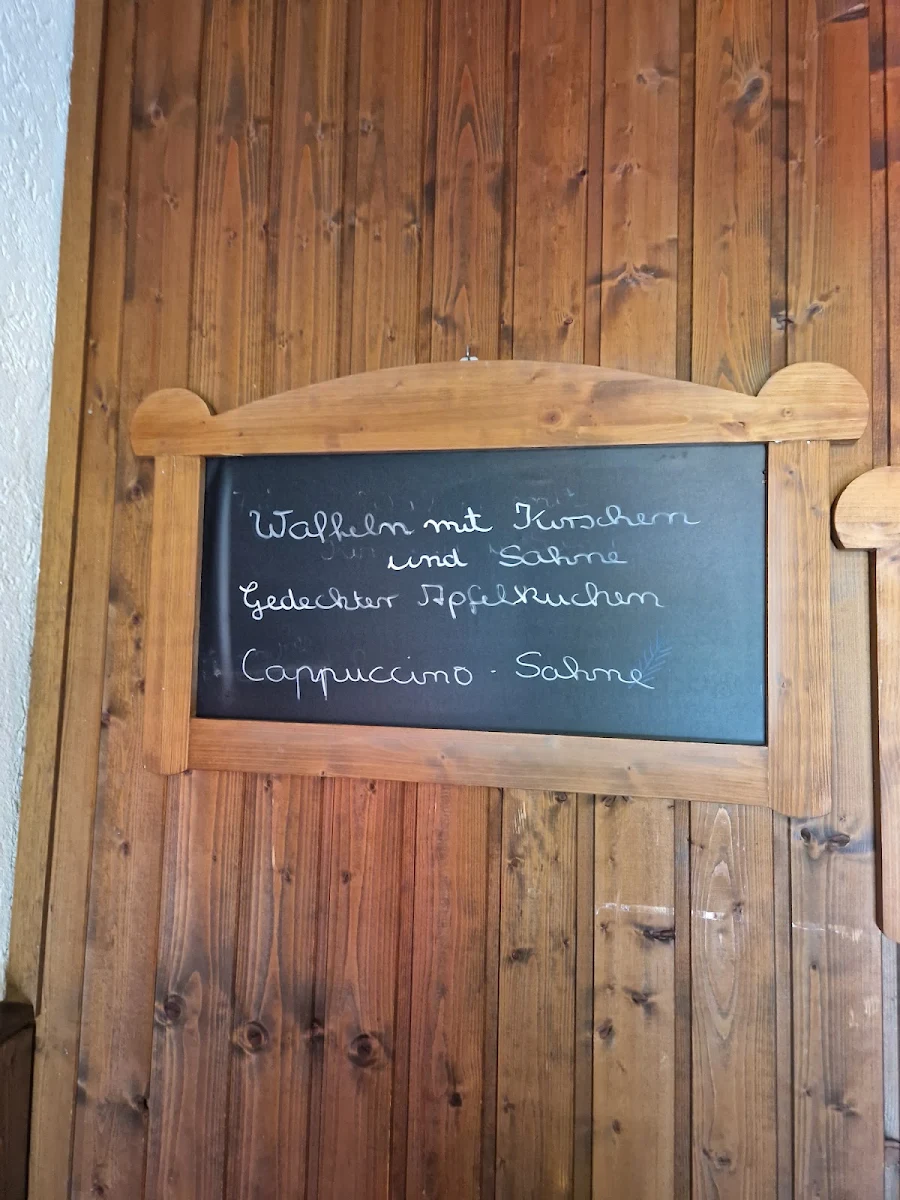 Waffeln mit Kirschen
und Sahne
Gedeckter Apfelkuchen
Cappuccino - Sahne